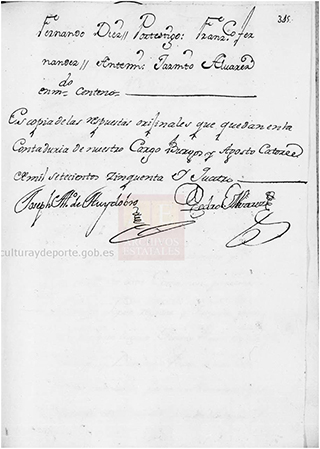 315.
Fernando Diez// Por testigo: Franco fer
nandez// Antemi: Jazinto Alvarez
do
enmo centeno
Es copia de las respuestas orijinales que quedan en la
Contaduria de nuestro Cargo Burgos y Agosto Catorze
de mil setecientos zinquenta y quatro
Joseph Ma. de Ruyalobo
Pedro Alvarez
culturaydeporte.gob.es
ARCHIVOS
ESTATALES